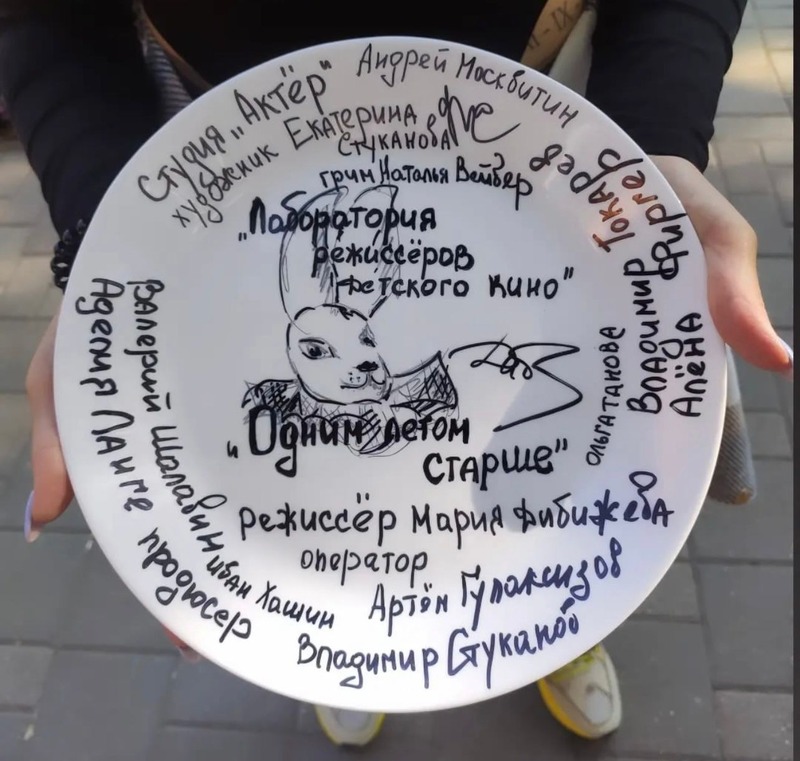 Андрей Москвитин
Студия "Актёр"
художник Екатерина
Стуканова
грим Наталья Вейбер
"Лаборатория
режиссёров
детского кино"
Токарев
Владимир
Фиргер
Алёна
Ольга Танова
"Одним летом
старше"
режиссёр Мария Фибижева
оператор
Артём Гулаксизов
Владимир Стуканов
Иван Хашин
Валерий Шалавин
Аделия Ланге продюсер